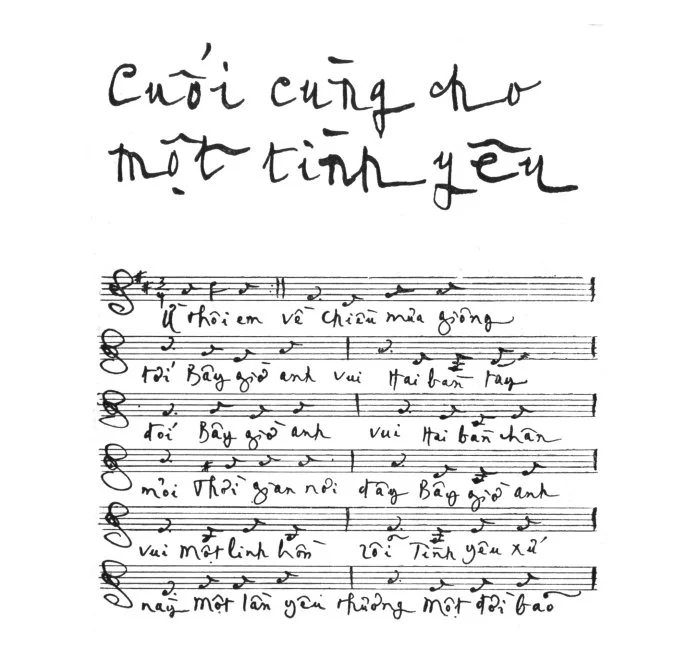 Cuối cùng cho
một tình yêu
Ừ thôi em về chiều mưa giông
tới Bây giờ anh vui Hai bàn tay
đói Bây giờ anh vui Hai bàn chân
mỏi Thời gian nơi đây Bây giờ anh
vui Một linh hồn rồi Tình yêu xứ
này Một lần yêu thương Một đời bão